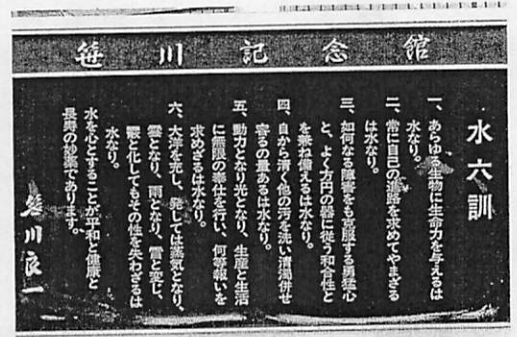 笹川記念館
水六訓
一、あらゆる生物に生命力を与えるは
水なり。
二、常に自己の進路を求めてやまざる
は水なり。
三、如何なる障害をも克服する勇猛心
と、よく方円の器に従う和合性と
を兼ね備えるは水なり。
四、自から清く他の汚を洗い清濁併せ
容るの量あるは水なり。
五、動力となり光となり、生産と生活
に無限の奉仕を行い、何等報いを
求めざるは水なり。
六、大洋を充し、発しては蒸気となり、
雲となり、雨となり、雪と変じ、
霰と化してもその性を失わざるは
水なり。
水を心とすることが平和と健康と
長寿の妙薬であります。
笹川良一